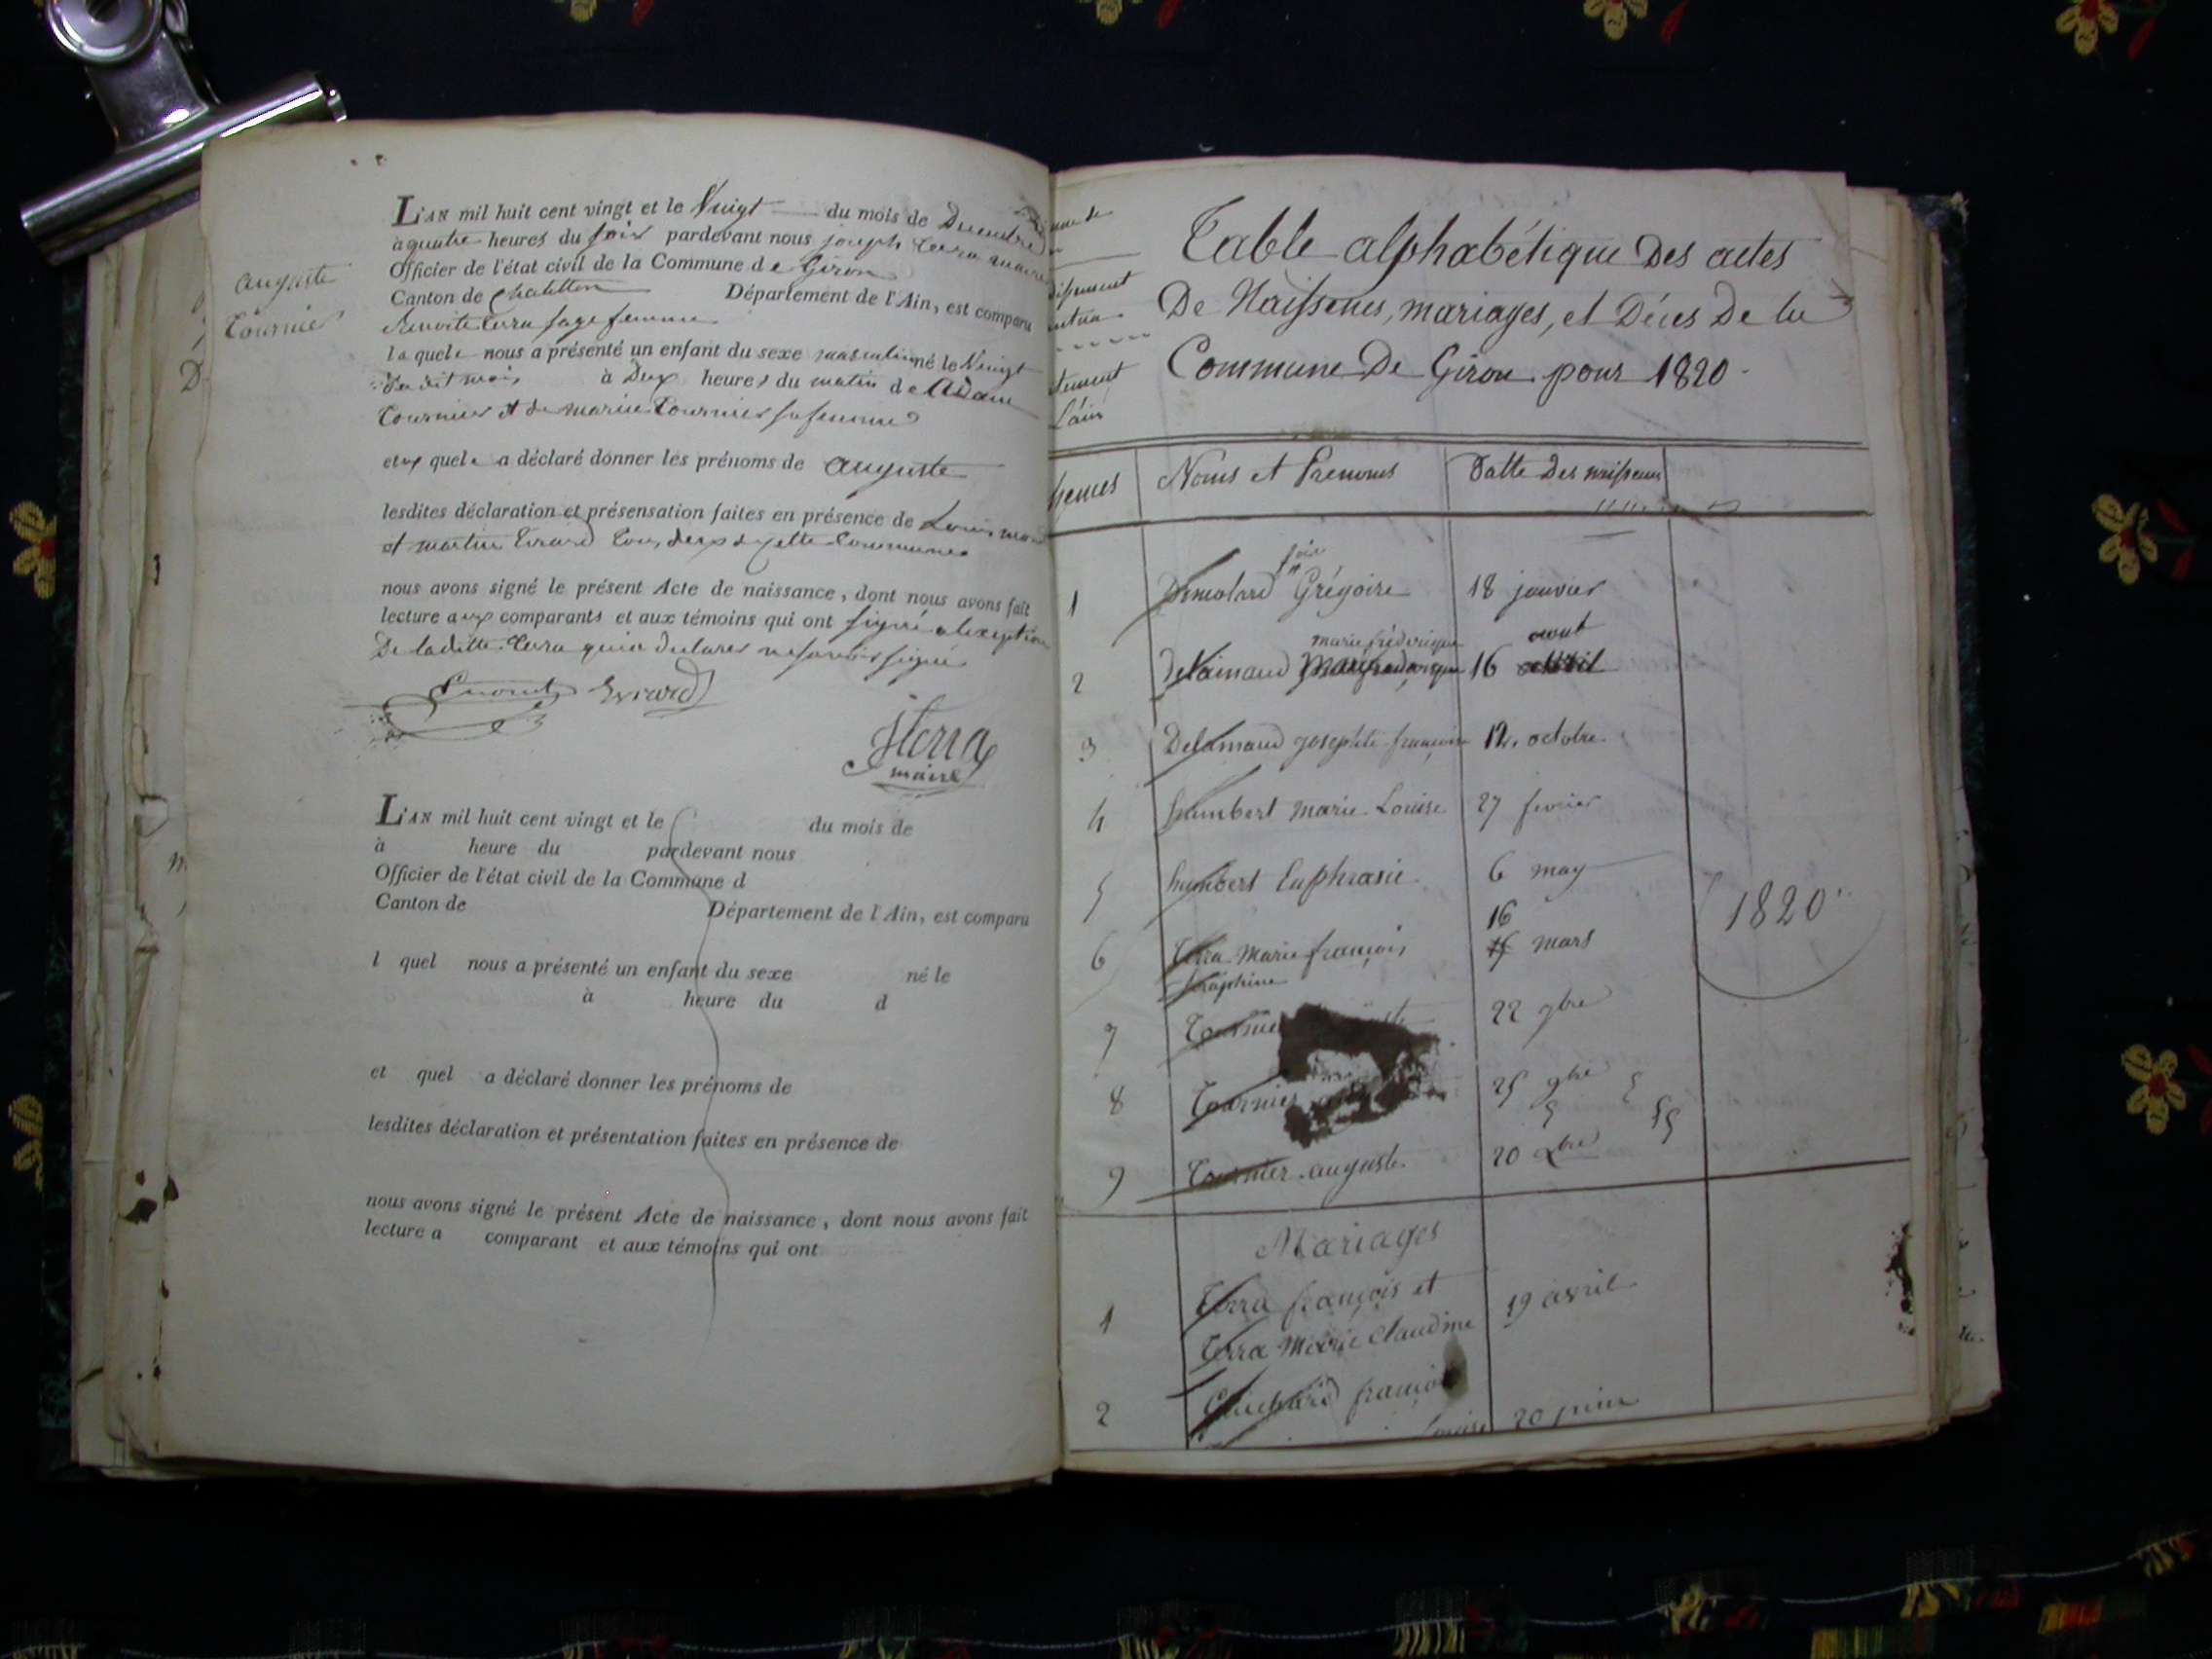 auguste
Tournier
L'AN mil huit cent vingt et le Vingt du mois de Decembre
à quatre heures du soir pardevant nous joseph terra maire
Officier de l'état civil de la Commune de Giron
Canton de Chatillon Département de l'Ain, est comparu
Benoite terra sage femme
laquele nous a présenté un enfant du sexe masculin né le Vingt
du dit mois à Deux heures du matin de Adam
Tournier et de marie Tournier sa femme
quele a déclaré donner les prénoms de auguste
lesdites déclaration et présensation faites en présence de Louis
et martin Evrard tous deux de cette Commune
nous avons signé le présent Acte de naissance, dont nous avons fait
lecture aux comparants et aux témoins qui ont signé a lexeption
De laditte terra qui a declarer ne savoir signé
Evrard
jterra
maire
L'AN mil huit cent vingt et le du mois de
à heure du pardevant nous
Officier de l'état civil de la Commune d
Canton de Département de l'Ain, est comparu
l quel nous a présenté un enfant du sexe né le
à heure du d
et quel a déclaré donner les prénoms de
lesdites déclaration et présentation faites en présence de
nous avons signé le présent Acte de naissance, dont nous avons fait
lecture a comparant et aux témoins qui ont
Table alphabétique Des actes
De Naissences, mariages, et Déces De la
Commune De Giron pour 1820
L'ain
Noms et Prenoms Datte Des
1 Grégoire 18 janvier
marie fréderique aout
2 Delaimaud 16
3 Delamaud josephte françoise 12. octobre
4 humbert marie Louise 27 fevrier
5 humbert Euphrasie 6 may
16
6 terra Marie françois mars
Séraphine
1820
7 22 9bre
8 Tournier 25 9bre
9 Tournier auguste 20 Xbre
Mariages
1 Terra françois et 19 avril
Terra Marie Claudine
2 françois
Louise 20 juin